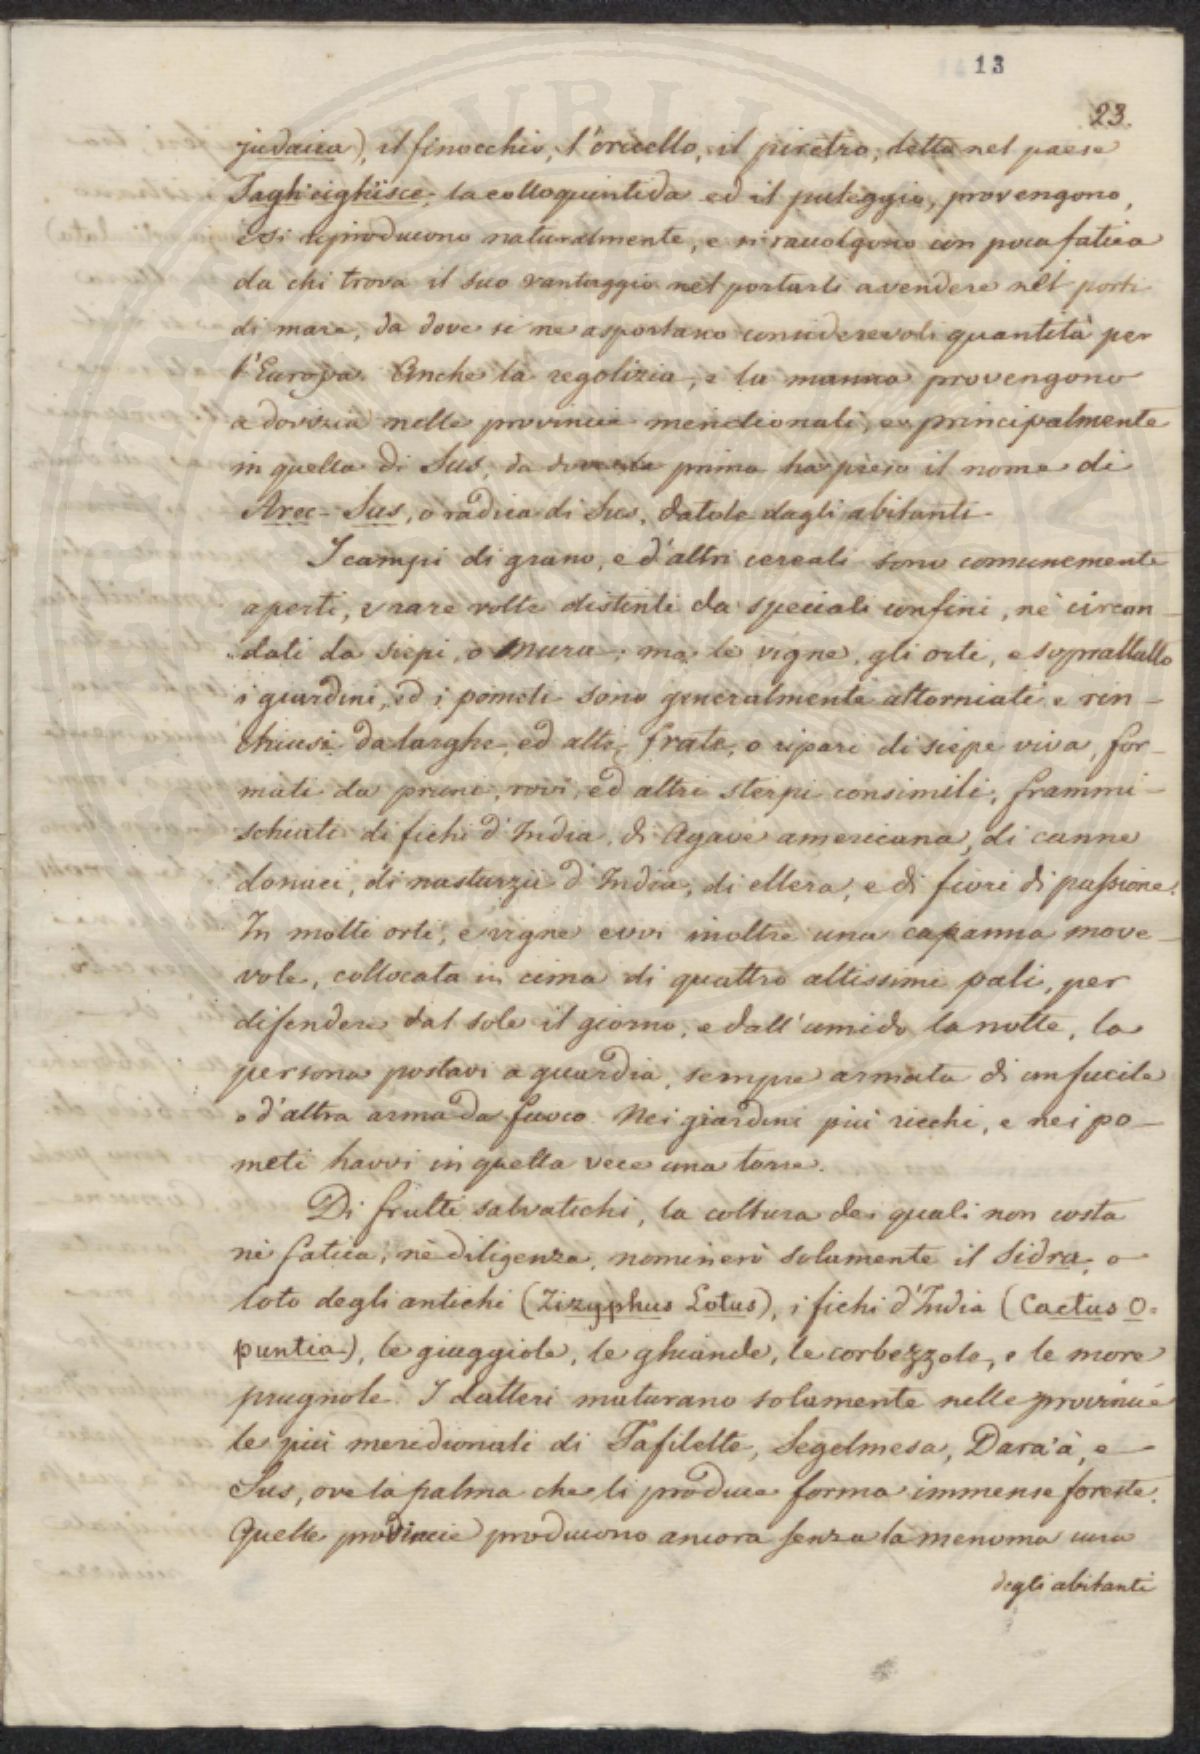 13
23.
judaica), il finocchio, l'oricello, il piretro, detto nel paese
Tagh'cighisce, la colloquintida ed il puleggio, provengono,
e si riproducono naturalmente, e si raccolgono con poca fatica
da chi trova il suo vantaggio nel portarli a vendere nei porti
di mare, da dove se ne asportano considerevoli quantità per
l'Europa. Anche la regolizia, e la manna provengono
a dovizia nelle provincie meridionali, e principalmente
in quella di Sus, da dove la prima ha preso il nome di
Arec-Sus, o radica di Sus, datole dagli abitanti.
I campi di grano, e d'altri cereali sono comunemente
aperti, e rare volte distinti da speciali confini, nè circon-
dati da siepi, o mura; ma le vigne, gli orti, e soprattutto
i giardini, ed i pometi sono generalmente attorniati e rin-
chiusi da larghe, ed alte fratte, o ripari di siepe viva, for-
mati da pruni, rovi, ed altri sterpi consimili, frammi-
schiati di fichi d'India, di Agave americana, di canne
donaci, di nasturzii d'India, di ellera, e di fiori di passione.
In molti orti, e vigne evvi inoltre una capanna move-
vole, collocata in cima di quattro altissimi pali, per
difendere dal sole il giorno, e dall'umido la notte, la
persona postavi a guardia, sempre armata di un fucile
o d'altra arma da fuoco. Nei giardini più ricchi, e nei po-
meti havvi in quella vece una torre.
Di frutti salvatichi, la coltura dei quali non costa
nè fatica, nè diligenza, nominerò solamente il Sidra, o
loto degli antichi (Zizyphus Lotus), i fichi d'India (Cactus O-
puntia), le giuggiole, le ghiande, le corbezzole, e le more
prugnole. I datteri maturano solamente nelle provincie
le più meridionali di Tafilette, Segelmesa, Dara'à, e
Sus, ove la palma che li produce forma immense foreste.
Quelle provincie producono ancora senza la menoma cura
degli abitanti